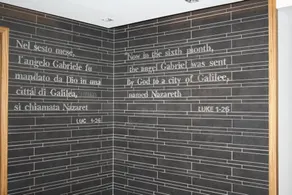 Nel sesto mese,
l'angelo Gabriele fu
mandato da Dio in una
città di Galilea,
si chiamata Nazaret
LUC 1-26
Now in the sixth month,
the angel Gabriel was sent
By God to a city of Galilee,
named Nazareth
LUKE 1-26